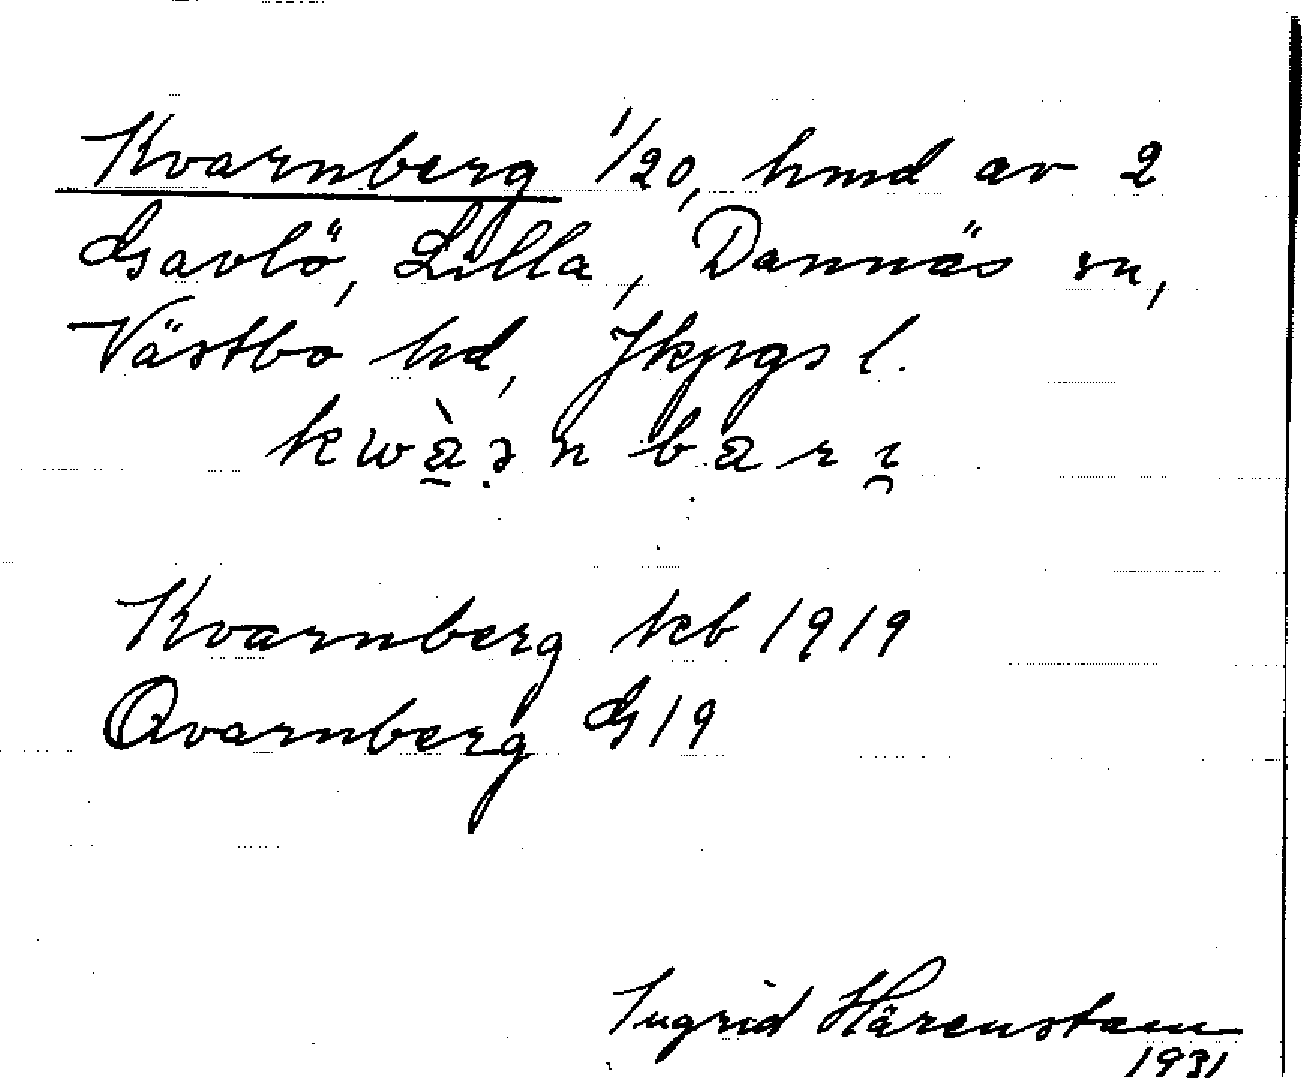 Kvarnberg 1/20, hmd av 2
Gavlö, Lilla, Dannäs sn,
Västbo hd, Jkpgs l.
kwàənbarı
Kvarnberg kb 1919
Qvarnberg G 19
Ingrid Härenstam
1931